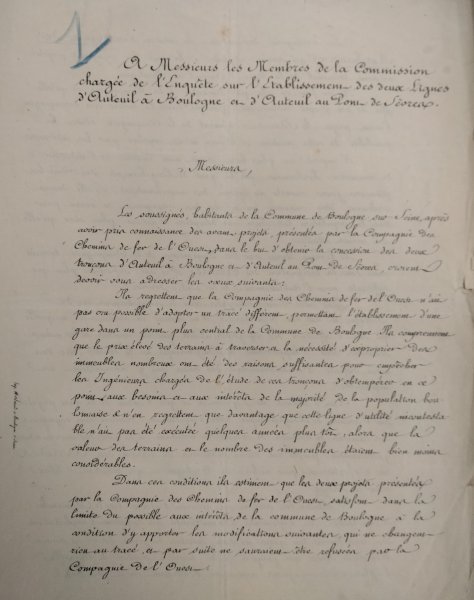 A Messieurs les Membres de la Commission
chargée de l'Enquête sur l'Etablissement des deux Lignes
d'Auteuil à Boulogne et d'Auteuil au Pont de Sèvres.
Messieurs,
Les soussignés, habitants de la Commune de Boulogne sur Seine, après
avoir pris connaissance des avant-projets présentés par la Compagnie des
Chemins de fer de l'Ouest, dans le but d'obtenir la concession des deux
tronçons d'Auteuil à Boulogne et d'Auteuil au Pont de Sèvres, croient
devoir vous adresser les vœux suivants:
Ils regrettent que la Compagnie des Chemins de fer de l'Ouest n'ait
pas cru possible d'adopter un tracé différent, permettant l'établissement d'une
gare dans un point plus central de la Commune de Boulogne. Ils comprennent
que le prix élevé des terrains à traverser et la nécessité d'exproprier des
immeubles nombreux ont été des raisons suffisantes pour empêcher
les Ingénieurs chargés de l'étude de ces tronçons d'obtempérer en ce
point aux besoins et aux intérêts de la majorité de la population bou-
lonnaise & n'en regrettent que davantage que cette ligne d'utilité incontesta-
ble n'ait pas été exécutée quelques années plus tôt, alors que la
valeur des terrains et le nombre des immeubles étaient bien moins
considérables.
Dans ces conditions ils estiment que les deux projets présentés
par la Compagnie des Chemins de fer de l'Ouest satisfont dans la
limite du possible aux intérêts de la commune de Boulogne à la
condition d'y apporter les modifications suivantes, qui ne changent
rien au tracé et par suite ne sauraient être refusées par la
Compagnie de l'Ouest: